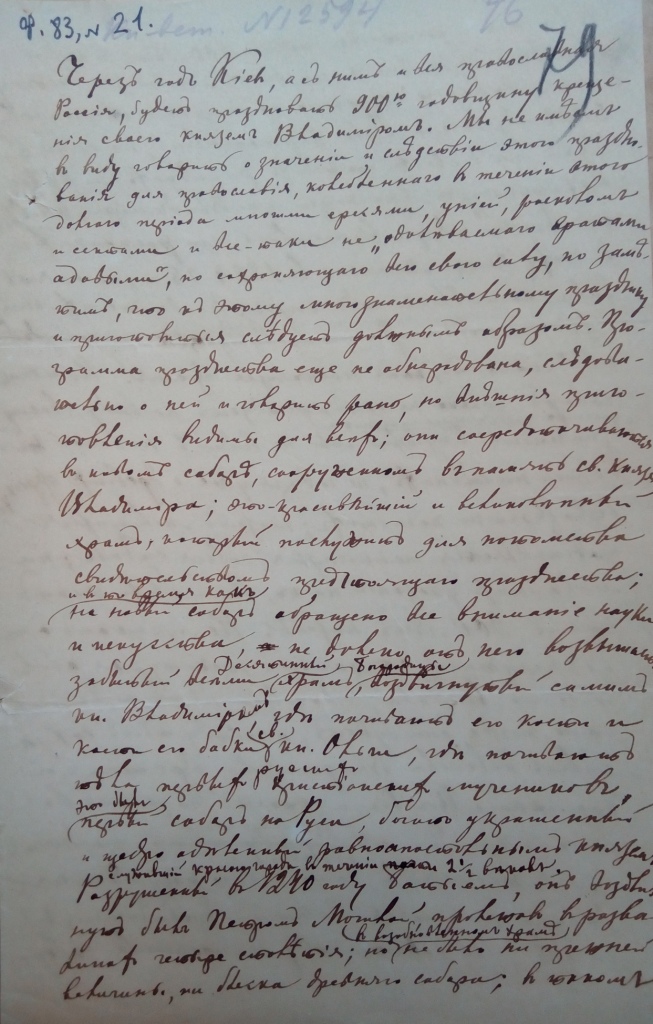 Ф. 83, № 21.
N 12594
76
79
Черезъ годъ Кіев, а съ нимъ и вся православная
Россія, будетъ праздновать 900ю годовщину креще-
нія своего княземъ Владиміромъ. Мы не имѣемъ
въ виду говорить о значеніи и слѣдствіи этого праздно-
ванія для православія, колебленнаго в теченіи этого
долгаго періода многими ересями, уніей, расколомъ
и сектами и все-таки не „одолѣваемаго вратами
адовыми“, но сохраняющаго всю свою силу, но замѣ-
тимъ, что къ этому многознаменательному празднику
и приготовиться слѣдуетъ должнымъ образомъ. Про-
грамма празднества еще не обнародована, слѣдова-
тельно о ней и говорить рано, но внѣшнія приго-
товленія видимы для всѣхъ; они сосредоточиваются
въ новомъ соборѣ, сооруженномъ въ память св. Князя
Владиміра; это-красивѣйшій и великолѣпный
храмъ, который послужитъ для потомства
свидѣтельствомъ предстоящаго празднества;
и въ то время какъ
на новый соборъ обращено все вниманіе науки
и искусства, не далеко отъ него возвышался
Десятинный Богородицы
забытый всѣми храмъ, воздвигнутый самимъ
кн. Владиміромъ, гдѣ почиваютъ его кости и
св.
кости его бабки кн. Ольги, гдѣ почиваютъ
русских
тѣла первыхъ христіанскихъ мучениковъ.
Это былъ
первый соборъ на Руси, богато украшенный
и щедро одѣленный равноапостольнымъ княземъ
въ теченіи 2 1/2 вѣковъ.
Разрушенный въ 1240 году Батыемъ, онъ воздви-
гнутъ былъ Петромъ Могилой, пролежавъ в разва-
въ возобновленномъ храмѣ
линахъ четыре столѣтія; но не было ни прежней
величины, ни блеска древняго собора; въ такомъ